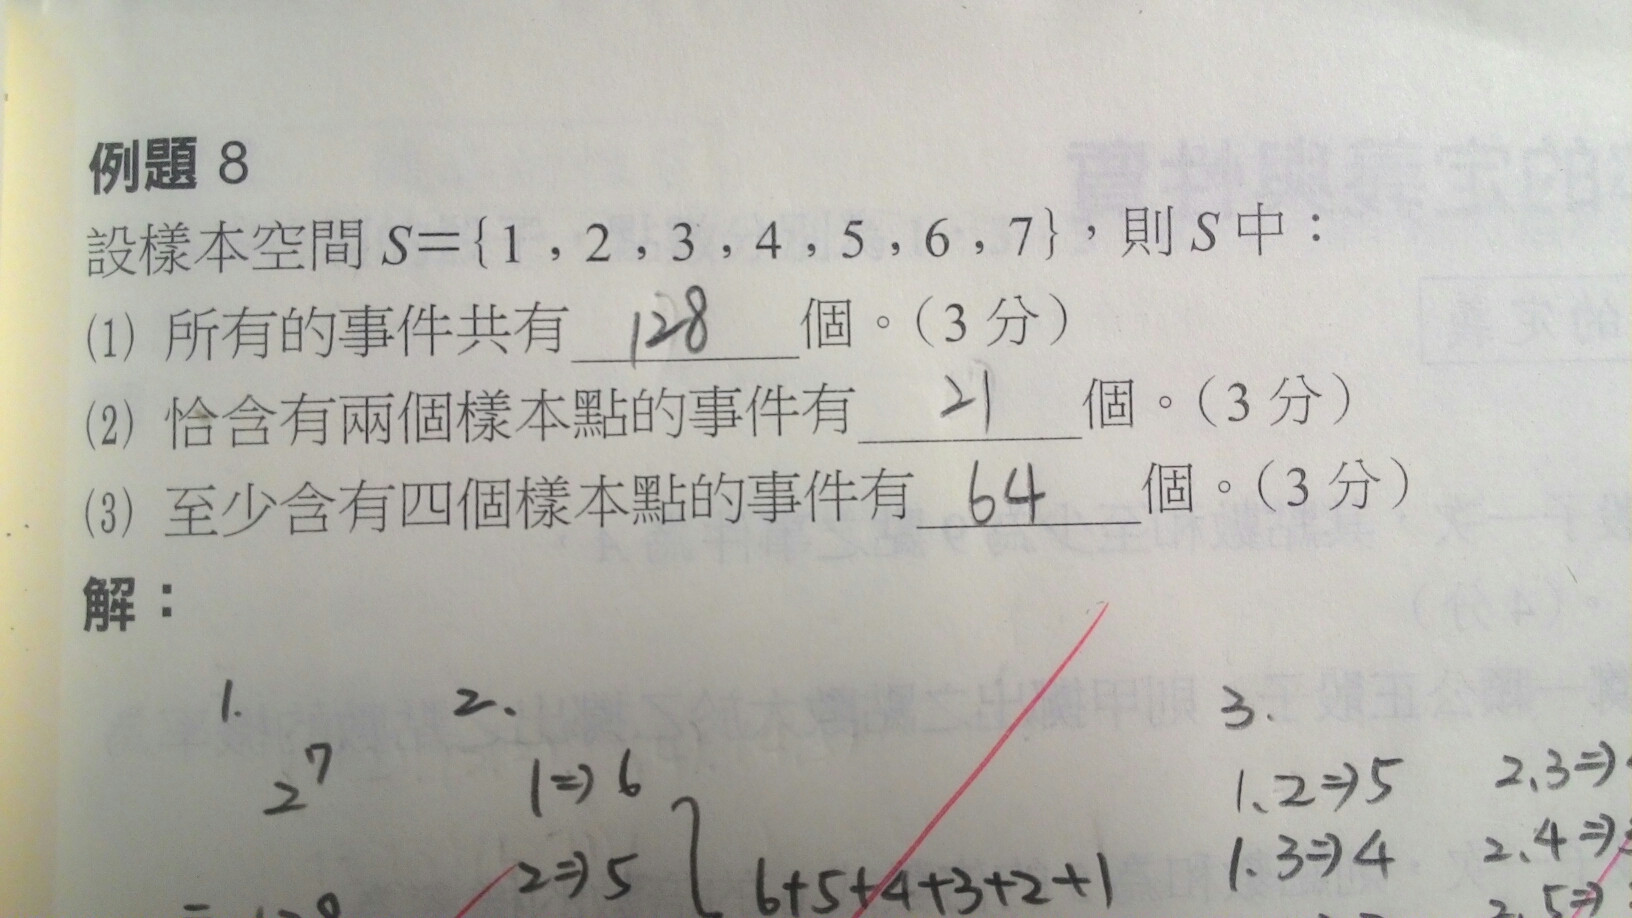 例題 8
設樣本空間 S={1，2，3，4，5，6，7}，則 S 中：
(1) 所有的事件共有 128 個。（3 分）
(2) 恰含有兩個樣本點的事件有 21 個。（3 分）
(3) 至少含有四個樣本點的事件有 64 個。（3 分）
解：
1.
2⁷
2.
1⇒6
2⇒5
6+5+4+3+2+1
3.
1、2⇒5
1、3⇒4
2、3⇒
2、4⇒
2、5⇒